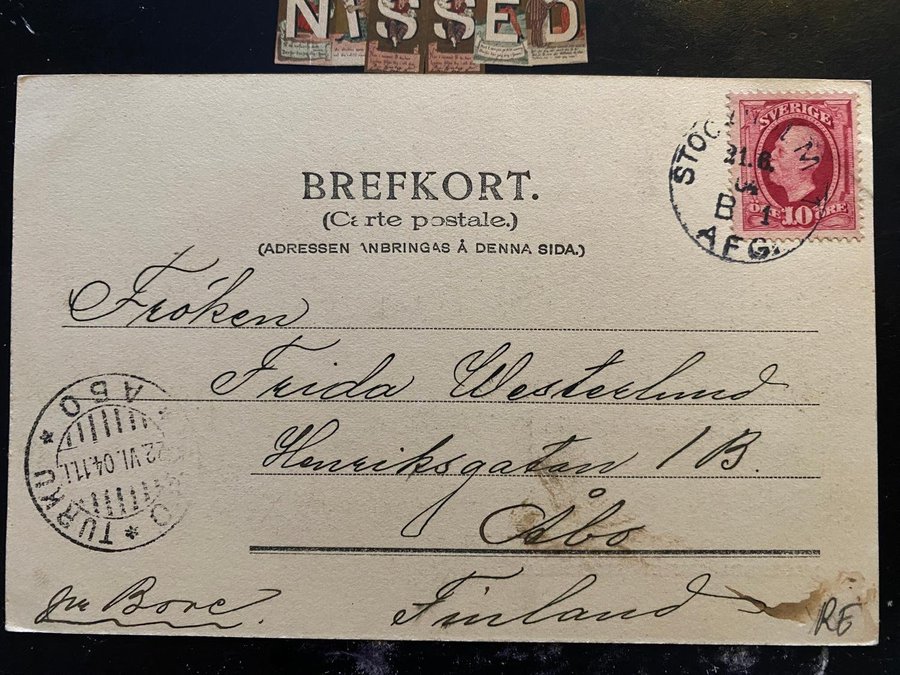 NISSED
BREFKORT.
(Carte postale.)
(ADRESSEN ANBRINGAS Å DENNA SIDA.)
SVERIGE
10 ÖRE
21.6.
04
B 1
AFG.
Fröken
Frida Westerlund
Henriksgatan 1 B.
Åbo
Finland
ÅBO
22.VI.04.11
* TURKU *
pr Bore.
RE